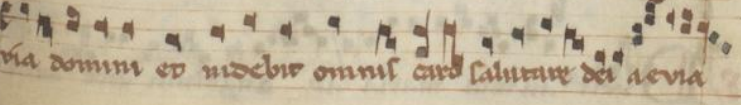 via domini et videbit omnis caro salutare dei aevia